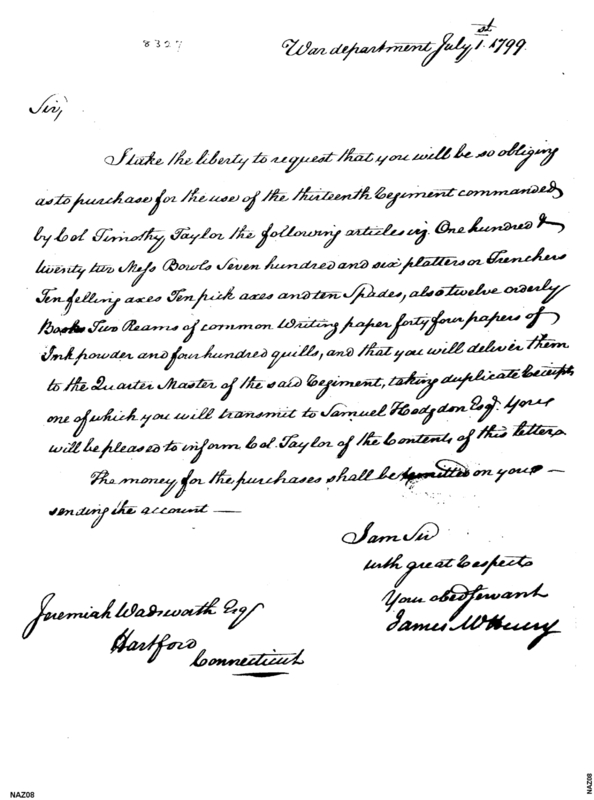 8327
War department July 1st. 1799.
Sir,
I take the liberty to request that you will be so obliging
as to purchase for the use of the thirteenth Regiment commanded
by Col Timothy Taylor the following articles viz. One hundred &
twenty two Mess Bowls Seven hundred and six platters or Trenchers
Ten felling axes Ten pick axes and ten Spades, also twelve orderly
Books Two Reams of common Writing paper forty four papers of
Ink powder and four hundred quills, and that you will deliver them
to the Quarter Master of the said Regiment, taking duplicate Receipts
one of which you will transmit to Samuel Hodgdon Esqr. You
will be pleased to inform Col. Taylor of the Contents of this letter.
The money for the purchases shall be remitted on your —
sending the account —
I am Sir
with great respect
Your obed Servant
James McHenry
Jeremiah Wadsworth Esq
Hartford
Connecticut
NAZ08
NAZ08